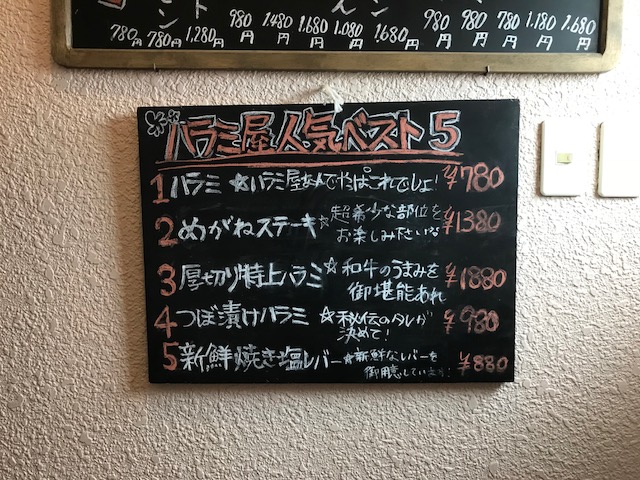 780円 780円 1,280円 980円 1,480円 1,680円 1,080円 1,680円 980円 980円 780円 1,180円 1,680円
ハラミ屋人気ベスト5
1 ハラミ ☆ハラミ屋なんでやっぱこれでしょ! ¥780
2 めがねステーキ☆超希少な部位を ¥1380
お楽しみ下さい
3 厚切り特上ハラミ☆和牛のうまみを ¥1880
御堪能あれ
4 つぼ漬けハラミ ☆秘伝のタレが ¥980
決めて!
5 新鮮焼き塩レバー☆新鮮なレバーを ¥880
御用意しています!